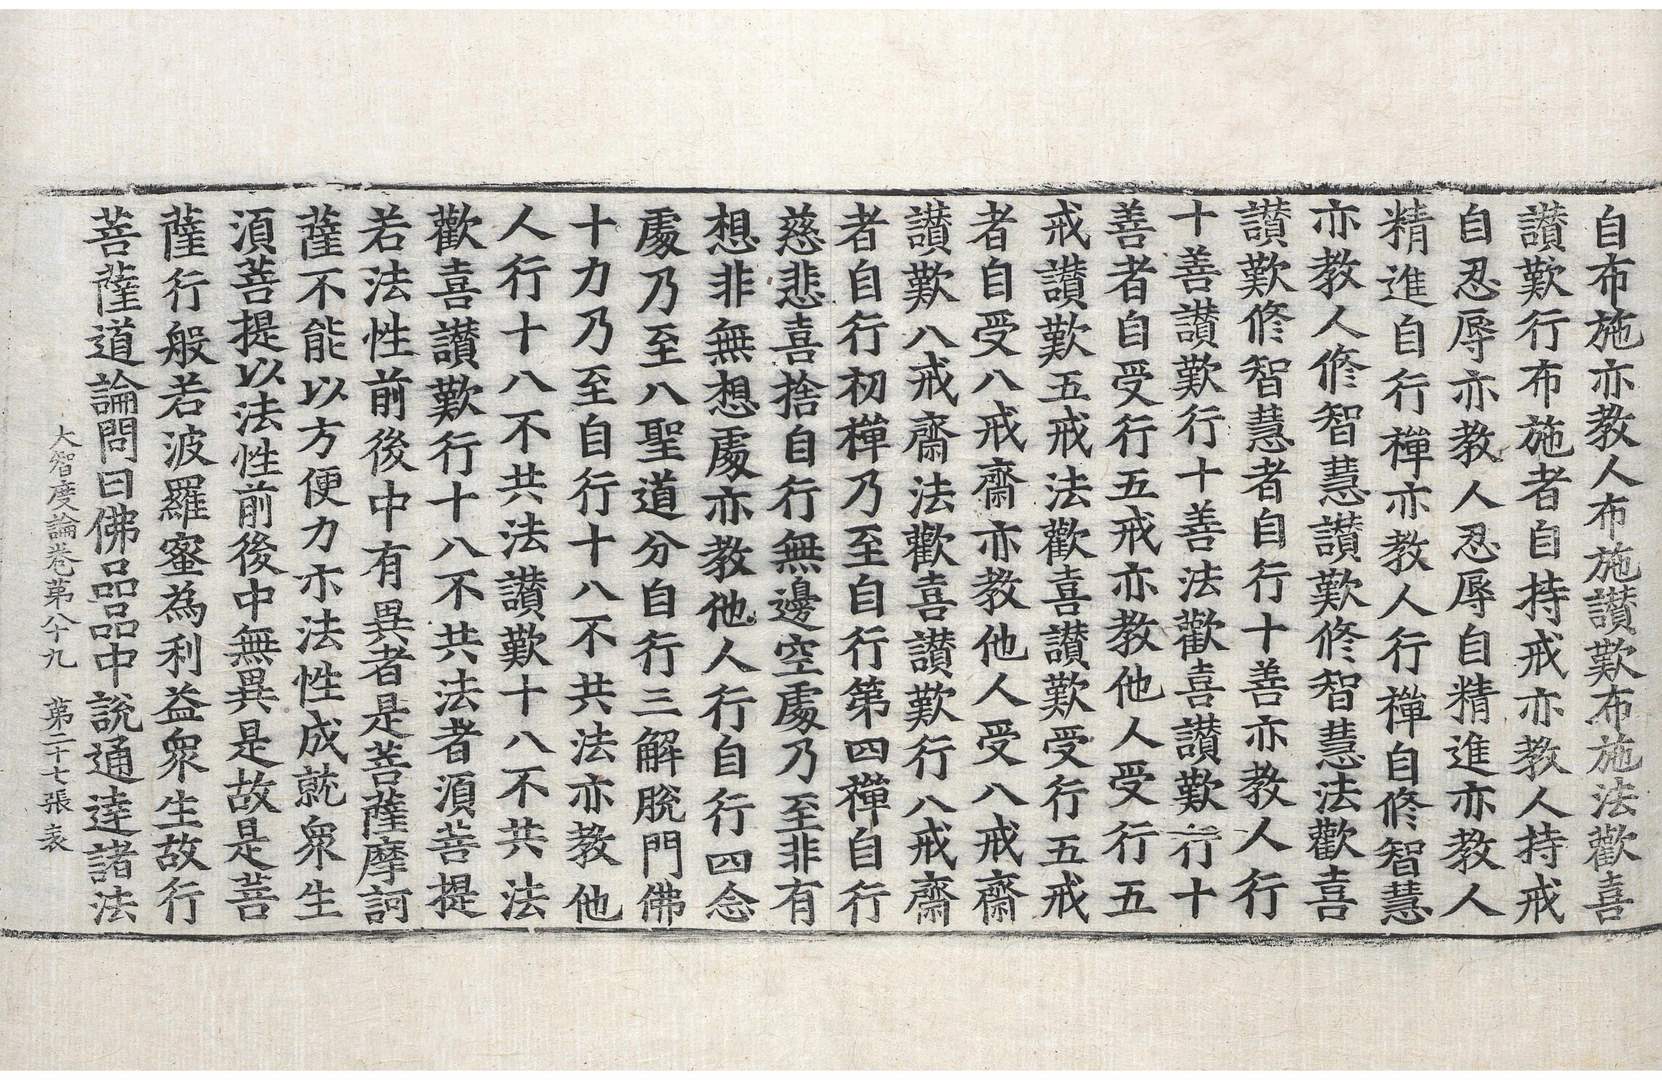 自布施亦教人布施讃歎布施法歡喜
讃歎行布施者自持戒亦教人持戒
自忍辱亦教人忍辱自精進亦教人
精進自行禪亦教人行禪自修智慧
亦教人修智慧讃歎修智慧法歡喜
讃歎修智慧者自行十善亦教人行
十善讃歎行十善法歡喜讃歎行十
善者自受行五戒亦教他人受行五
戒讃歎五戒法歡喜讃歎受行五戒
者自受八戒齋亦教他人受八戒齋
讃歎八戒齋法歡喜讃歎行八戒齋
者自行初禪乃至自行第四禪自行
慈悲喜捨自行無邊空處乃至非有
想非無想處亦教他人行自行四念
處乃至八聖道分自行三解脫門佛
十力乃至自行十八不共法亦教他
人行十八不共法讃歎十八不共法
歡喜讃歎行十八不共法者須菩提
若法性前後中有異者是菩薩摩訶
薩不能以方便力示法性成就衆生
須菩提以法性前後中無異是故是菩
薩行般若波羅蜜為利益衆生故行
菩薩道論問曰佛品品中說通達諸法
大智度論卷第八十九 第二十七張 表